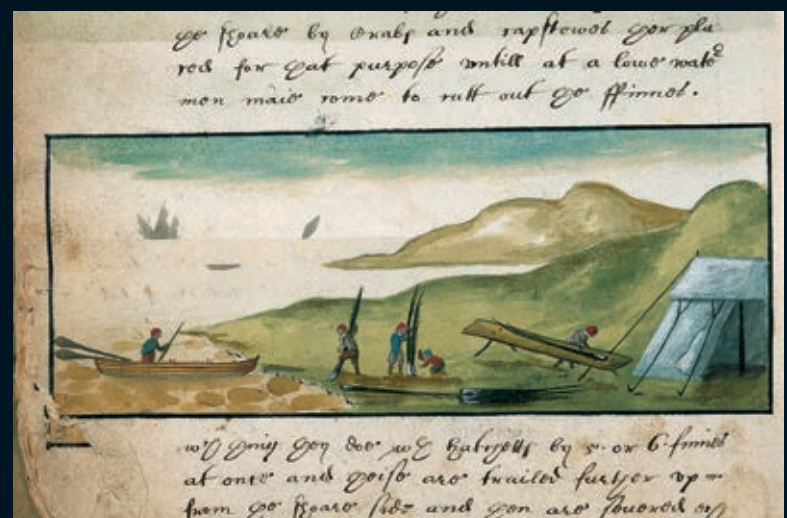 the shoare by crabs and capstowes ther pla
ced for that purpose vntill at a lowe water
men maie come to cutt out the ffinnes.
wch thing they doe wth hatchetts by 5. or 6. finnes
at once and theise are trailed further vp
from the shoare side and then are seuered